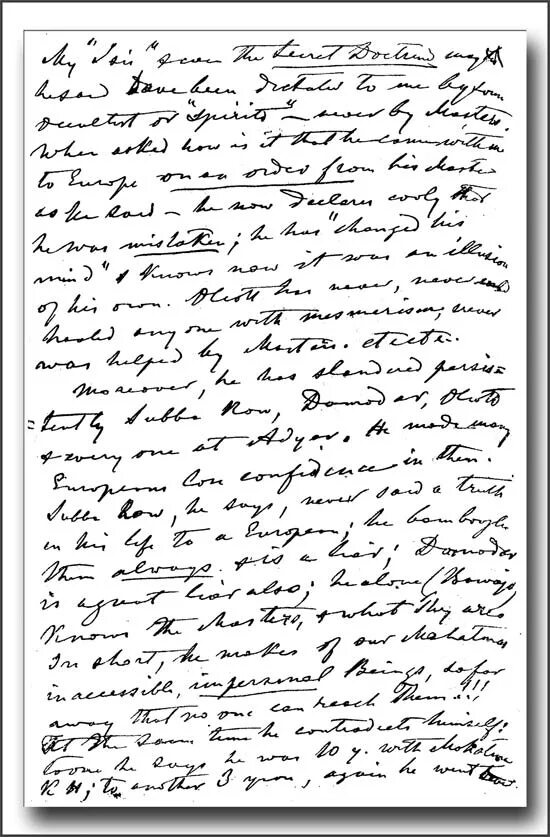 My "Isis" & even the Secret Doctrine may
he said have been dictated to me by some
occultist or "spirits" – never by Masters.
When asked how is it that he came with me
to Europe on an order from his Master
as he said – he now declares cooly that
he was mistaken; he has "changed his
mind" & knows now it was an illusion
of his own. Olcott has never, never
healed any one with mesmerism, never
was helped by Masters. etc etc.
Moreover, he has slandered persis=
=tently Subba Row, Damodar, Olcott
& every one at Adyar. He made many
Europeans lose confidence in them.
Subba Row, he says, never said a truth
in his life to a European; he bamboozles
them always & is a liar; Damodar
is a great liar also; he alone (Bawaji)
knows the Masters, & what They are.
In short, he makes of our Mahatmas
inaccessible, impersonal Beings, so far
away that no one can reach Them!!!
At the same time he contradicts himself:
to one he says he was 10 y. with Mahatma
K H; to another 3 years, again he went